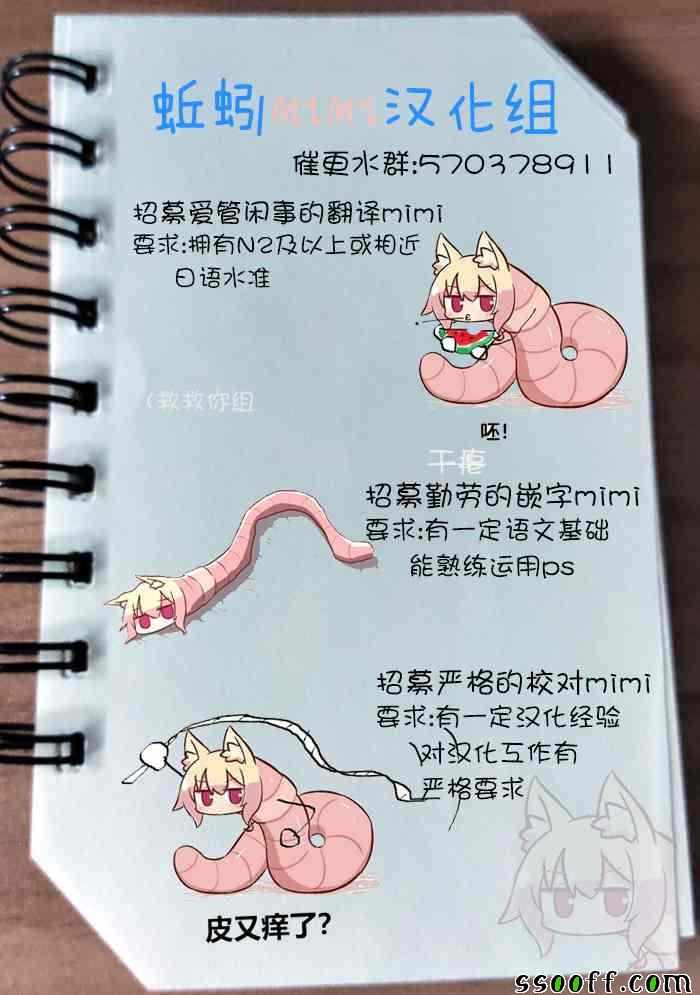 蚯蚓MIMI汉化组
催更水群:570378911
招募爱管闲事的翻译mimi
要求:拥有N2及以上或相近
日语水准
(救救你组
呸!
干瘪
招募勤劳的嵌字mimi
要求:有一定语文基础
能熟练运用ps
招募严格的校对mimi
要求:有一定汉化经验
对汉化工作有
严格要求
皮又痒了?
ssooff.com